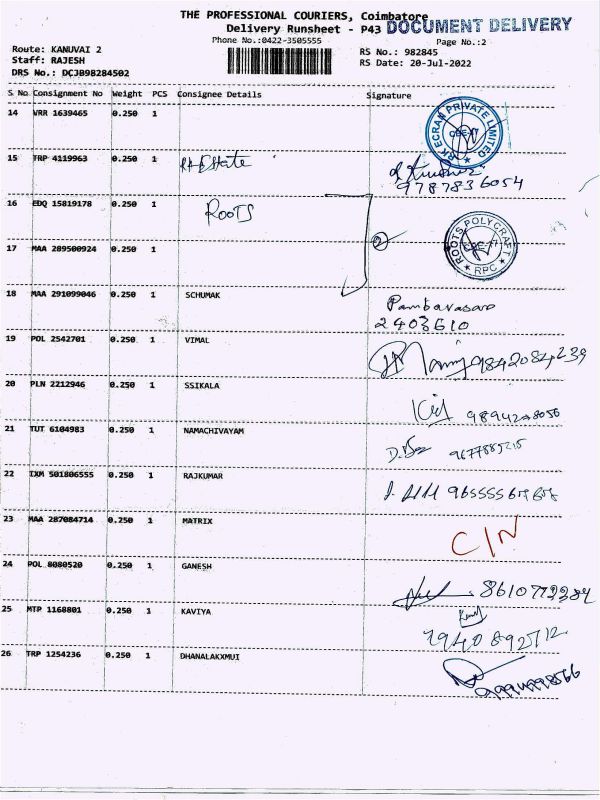 THE PROFESSIONAL COURIERS, Coimbatore
Delivery Runsheet - P43 DOCUMENT DELIVERY
Phone No.:0422-3505555 Page No.:2
Route: KANUVAI 2 RS No.: 982845
Staff: RAJESH RS Date: 20-Jul-2022
DRS No.: DCJB98284502
S No Consignment No Weight PCS Consignee Details Signature
14 VRR 1639465 0.250 1 RK ECRAN PRIVATE LIMITED
15 TRP 4119963 0.250 1 Estate
9787836054
16 EDQ 15819178 0.250 1 ROOTS
17 MAA 289500924 0.250 1 2 ROOTS POLYCRAFT RPC
18 MAA 291099046 0.250 1 SCHUMAK
2403610
19 POL 2542701 0.250 1 VIMAL 9842084239
20 PLN 2212946 0.250 1 SSIKALA
21 TUT 6104983 0.250 1 NAMACHIVAYAM
22 IXM 501806555 0.250 1 RAJKUMAR
23 MAA 287084714 0.250 1 MATRIX C/N
24 POL 8080520 0.250 1 GANESH
25 MTP 1168801 0.250 1 KAVIYA
26 TRP 1254236 0.250 1 DHANALAKXMUI